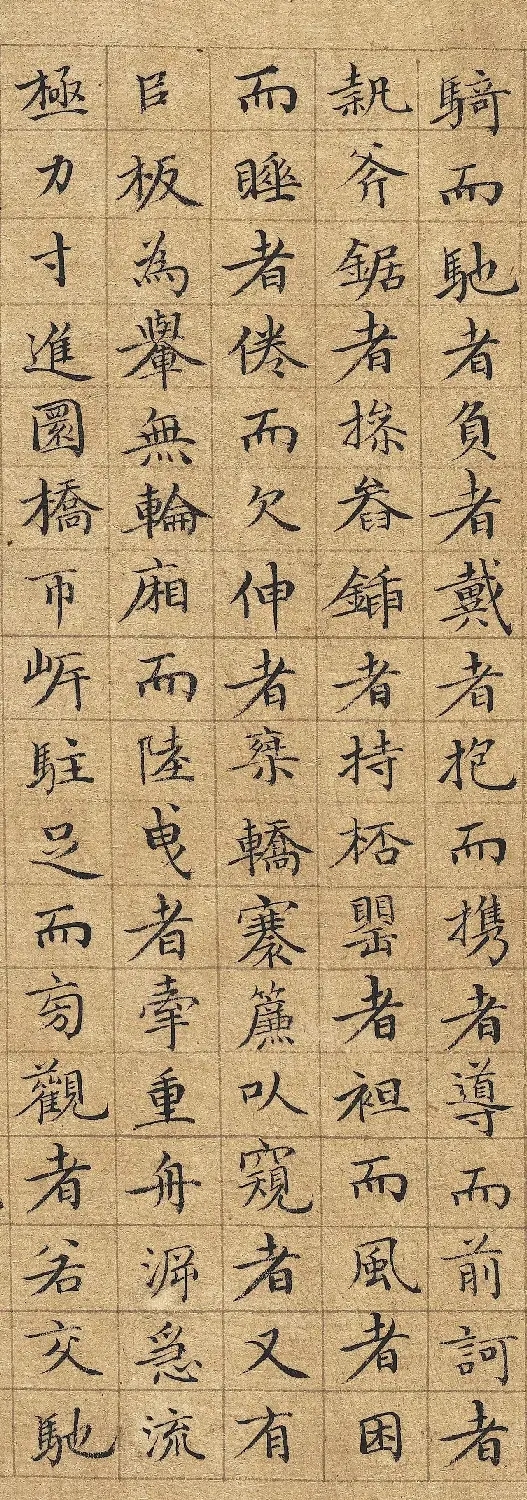 騎而馳者負者戴者抱而攜者導而前訶者
執斧鋸者操畚鍤者持桮罌者袒而風者困
而睡者倦而欠伸者乘轎褰簾以窺者又有
以板為轝無輪廂而陸曳者牽重舟泝急流
極力寸進圜橋帀岸駐足而旁觀者若交馳